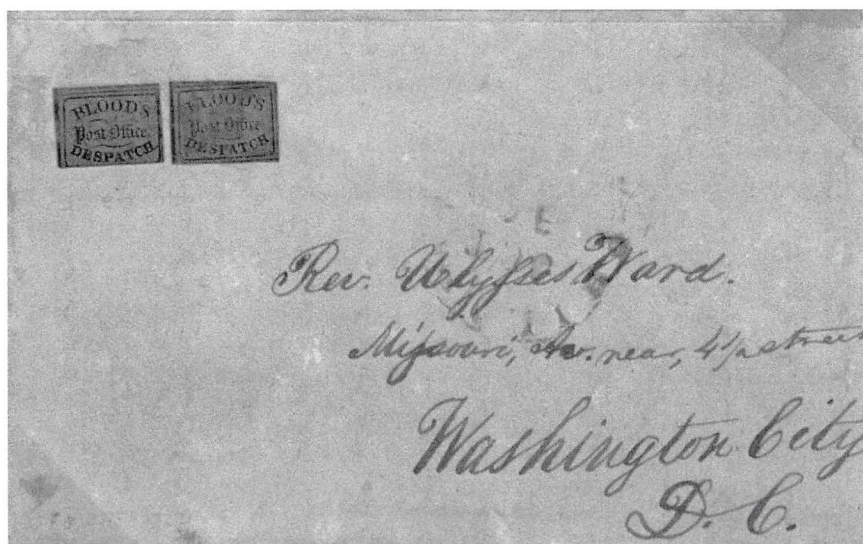 BLOOD'S
Post Office
DESPATCH
BLOOD'S
Post Office
DESPATCH
Rev. Ulysses Ward.
Missouri, Av. near, 4½ street
Washington City
D. C.